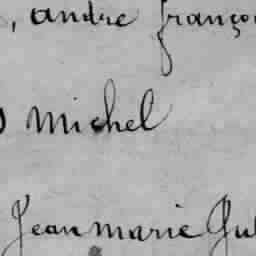 , andre françoi
michel
Jean marie Jul